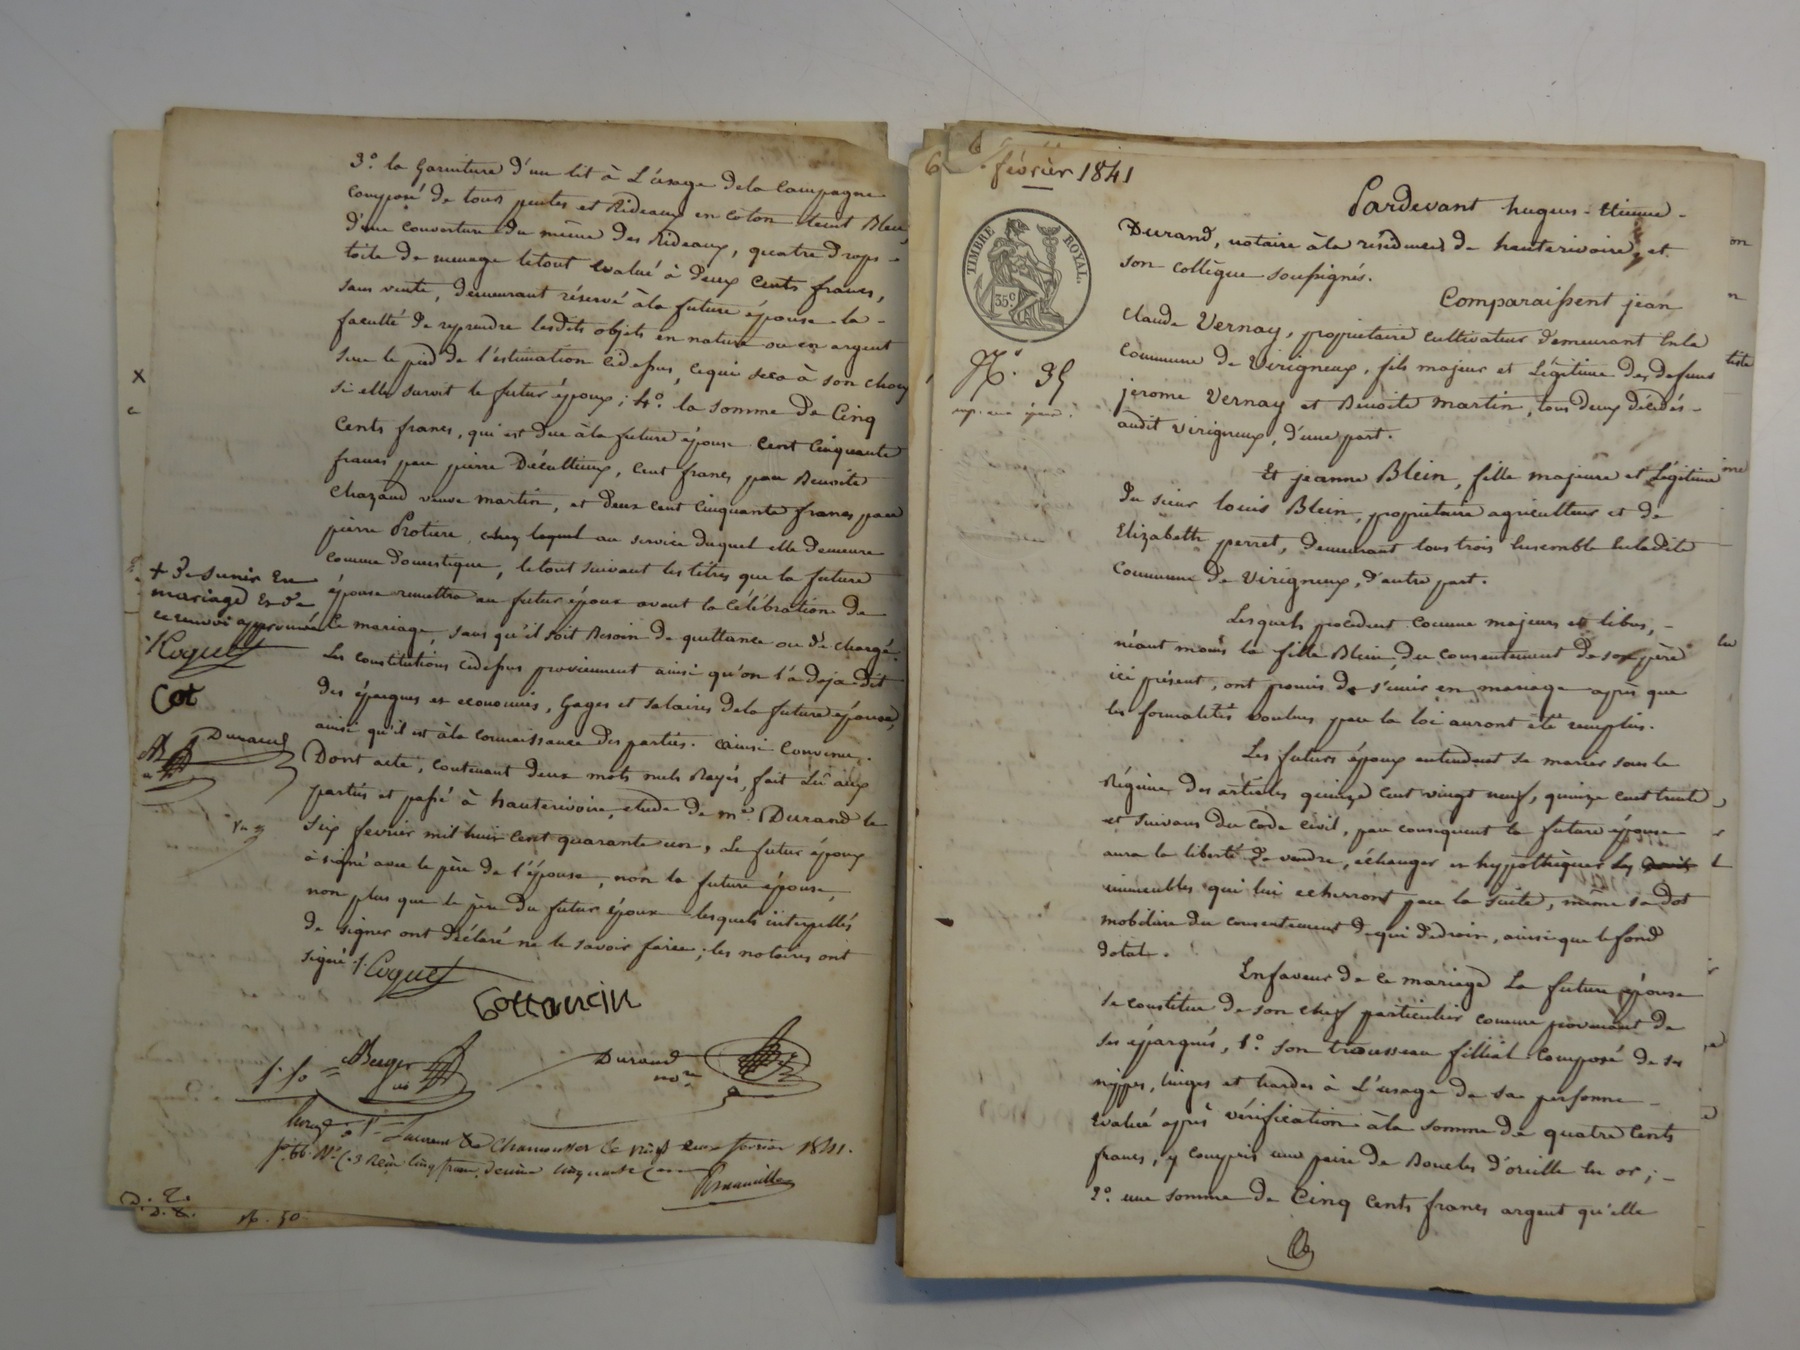 3º. la Garniture d'un lit à L'usage dela Campagne
composé de tours pentes et Rideaux en coton teint Bleu,
d'une couverture du même des Rideaux, quatre draps
toile de menage letout evalué à deux cents francs,
sans vente, demeurant réservé àla future épouse la
faculté de reprendre lesdits objets en nature ou en argent
sur le pied de l'estimation cidessus, cequi sera à son choix
si elle survit le futur époux; 4º. la somme de Cinq
Cents francs, qui est due àla future épouse cent cinquante
francs par pierre Décultieux, cent francs par Benoite
Chazaud veuve martin, et deux cent cinquante francs par
pierre Protiere, chez lequel au service duquel elle demeure
comme domestique, letout suivant les titres que la future
épouse remettra au futur époux avant la célébration de
le mariage, sans qu'il soit Besoin de quittance ou décharge.
Les constitutions cidessus proviennent ainsi qu'on l'a déja dit
des épargnes et economies, Gages et salaires dela future épouse,
ainsi qu'il est àla connaissance des parties. ainsi Convenu.
Dont acte, contenant deux mots nuls Rayés, fait Lu aux
parties et passé à hauterivoire, etude de me. Durand le
Six fevrier mil huit cent quarante un, Le futur époux
à signé avec le père de l'épouse, non la future épouse,
non plus que le père du futur époux lesquels interpellés
de signer ont déclaré ne le savoir faire; les notaires ont
signé
J. Coquet
Cottancin
Berger
Durand
nore
St Laurent de Chamousset le neuf fevrier 1841.
fo. 66
x
+ de sunir en
mariage et de
ce renvoi approuvé
Coquet
Cot
Durand
D. E.
D. E.
N. 50
6 février 1841
TIMBRE ROYAL
35c
Nº. 35
Pardevant hugues-Etienne-
Durand, notaire àla résidence de hauterivoire, et
son collègue soussignés.
Comparaissent jean
Claude Vernay, propriétaire cultivateur demeurant enla
Commune de Virigneux, fils majeur et Légitime des defunts
jerome Vernay et Benoite Martin, tous deux décédés-
audit Virigneux, d'une part.
Et jeanne Blein, fille majeure et Légitime
du sieur louis Blein, propriétaire agriculteur et de
Elizabeth perret, demeurant tous trois Ensemble enladite
Commune de Virigneux, d'autre part.
Lesquels procédent comme majeurs et libres,-
néant moins la fille Blein, du consentement de son père
ici présent, ont promis de s'unir en mariage après que
les formalités voulues par la loi auront été remplis.
Les futurs époux entendent se marier sous le
Régime des articles quinze cent vingt neuf, quinze cent trente
et suivans du code civil, par conséquent la future épouse
aura la liberté de vendre, échanger et hypothéquer les
immeubles qui lui echerront par la suite, même sa dot
mobilière du consentement de qui dedroit, ainsi que le fond
dotal.
Enfaveur de ce mariage La future épouse
se constitue de son chef particulier comme provenant de
ses épargnes, 1º. son trousseau fillial composé de ses
nippes, linges et hardes à L'usage de sa personne-
Evalué après vérification àla somme de quatre cents
francs, y compris une paire de Boucles d'oreille en or;-
2º. une somme de Cinq Cents francs argent qu'elle